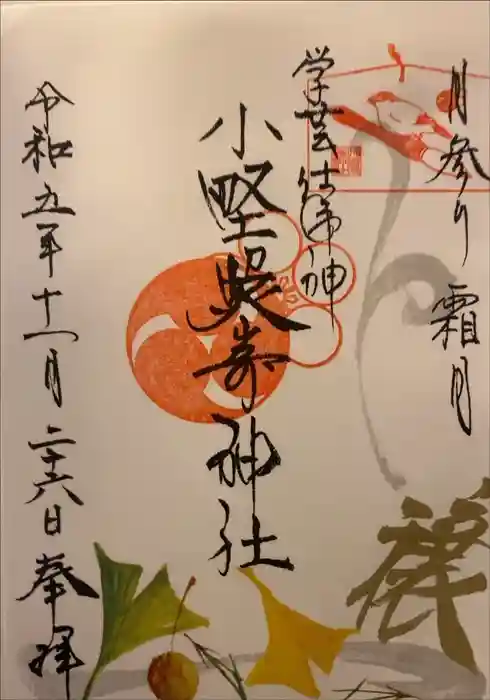 月参り 霜月
学芸仕事神
小野照崎神社
令和五年十一月二十六日奉拝